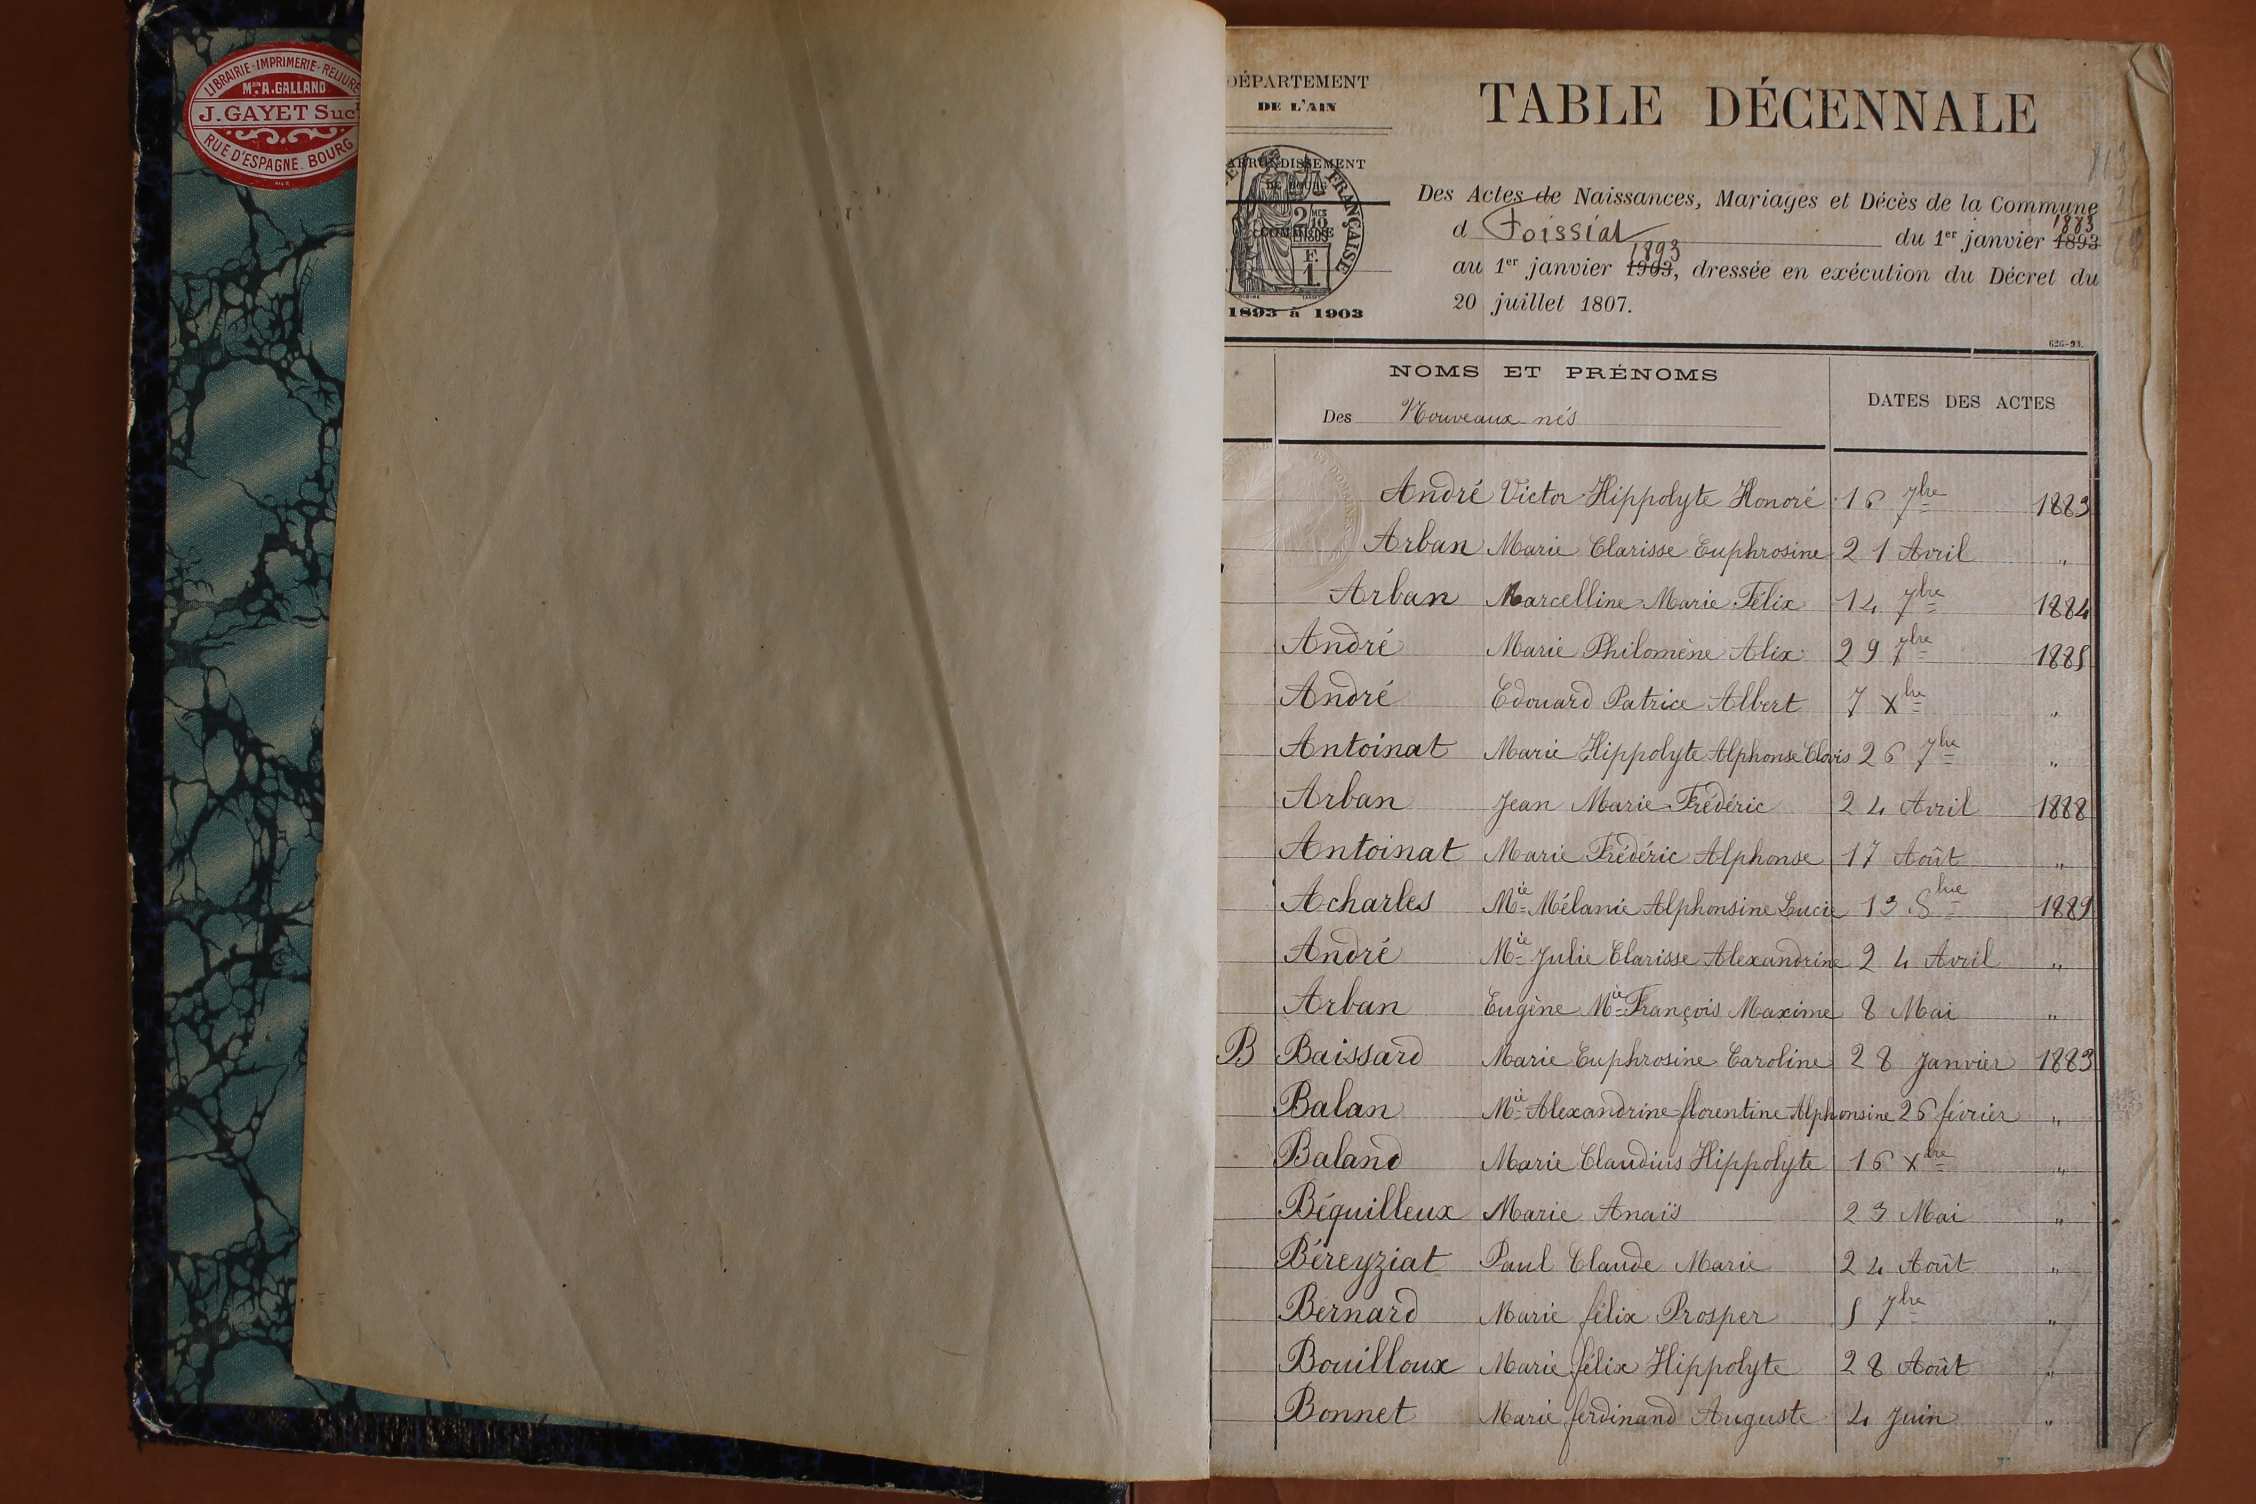 LIBRAIRIE-IMPRIMERIE-RELIURE
Mon A. GALLAND
J. GAYET Sucr
RUE D'ESPAGNE. BOURG
DÉPARTEMENT
DE L'AIN
ARRONDISSEMENT
DE BOURG
COMMUNE
FRANÇAISE
1893 à 1903
TABLE DÉCENNALE
Des Actes de Naissances, Mariages et Décès de la Commune
d Foissiat du 1er janvier 1893 1883
au 1er janvier 1903 1893, dressée en exécution du Décret du
20 juillet 1807.
626-93.
NOMS ET PRÉNOMS
Des Nouveaux nés
DATES DES ACTES
André Victor Hippolyte Honoré 16 7bre 1883
Arban Marie Clarisse Euphrosine 21 Avril "
Arban Marcelline Marie Félix 14 7bre 1884
André Marie Philomène Alix 29 7bre 1885
André Edouard Patrice Albert 7 Xbre "
Antoinat Marie Hippolyte Alphonse Clovis 26 7bre "
Arban Jean Marie Frédéric 24 Avril 1888
Antoinat Marie Frédéric Alphonse 17 Août "
Acharles Mie Mélanie Alphonsine Lucie 13 8bre 1889
André Mie Julie Clarisse Alexandrine 24 Avril "
Arban Eugène Mie François Maxime 8 Mai "
B Baissard Marie Euphrosine Caroline 28 Janvier 1883
Balan Mie Alexandrine florentine Alphonsine 26 février "
Baland Marie Claudius Hippolyte 16 Xbre "
Béquilleux Marie Anaïs 23 Mai "
Béreyziat Paul Claude Marie 24 Août "
Bernard Marie félix Prosper 5 7bre "
Bouilloux Marie félix Hippolyte 28 Août "
Bonnet Marie ferdinand Auguste 4 Juin "